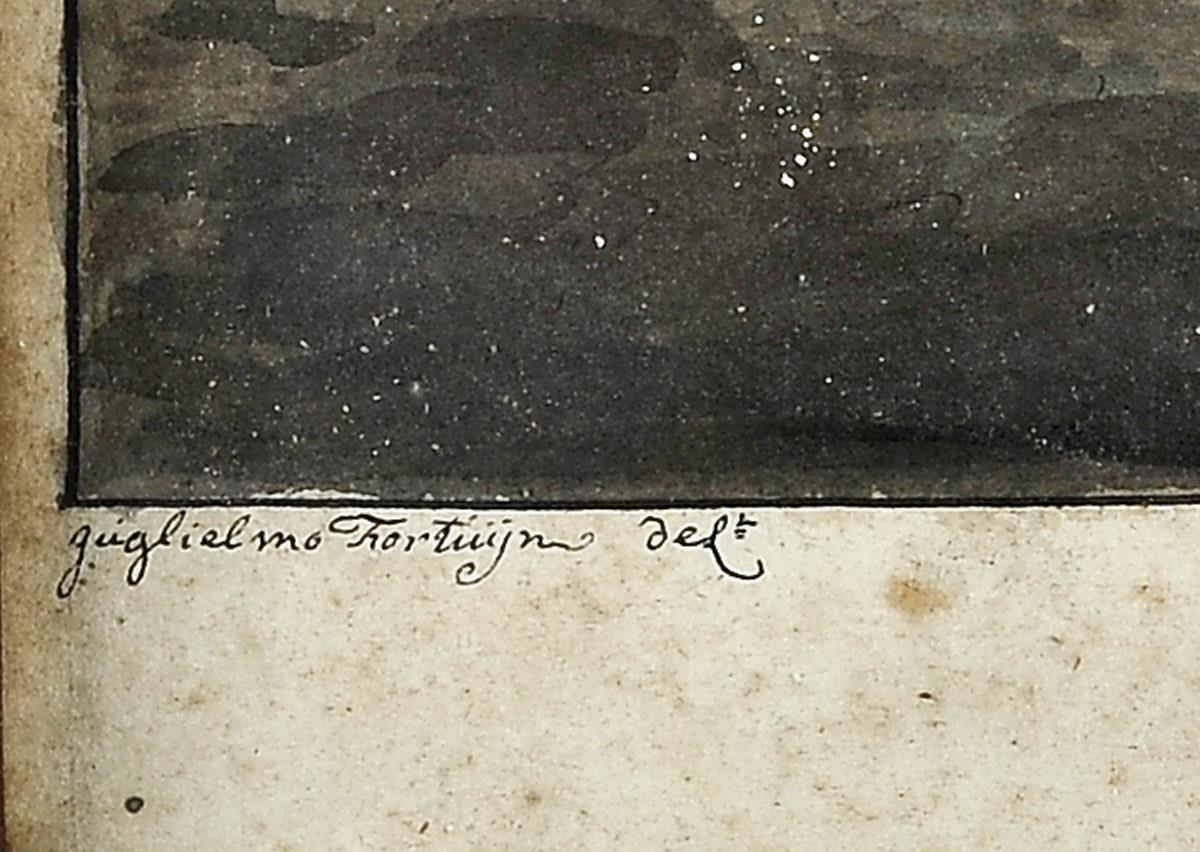 guglielmo Fortuijn del.t